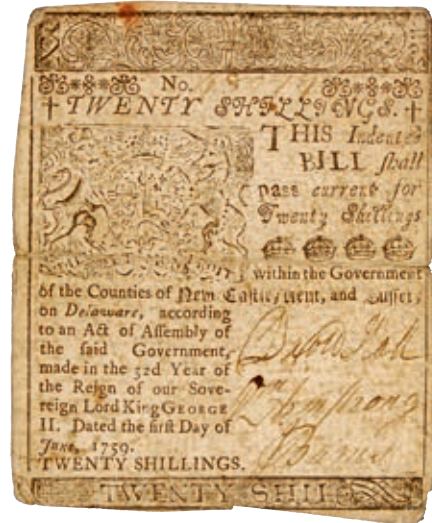 No.
TWENTY SHILLINGS.
THIS Indented
BILL ſhall
paſs current for
Twenty Shillings
within the Government
of the Counties of New Caſtle, Kent, and Suſſex,
on Delaware, according
to an Act of Aſſembly of
the ſaid Government,
made in the 32d Year of
the Reign of our Sove-
reign Lord King GEORGE
II. Dated the firſt Day of
June, 1759.
TWENTY SHILLINGS.
TWENTY SHILL